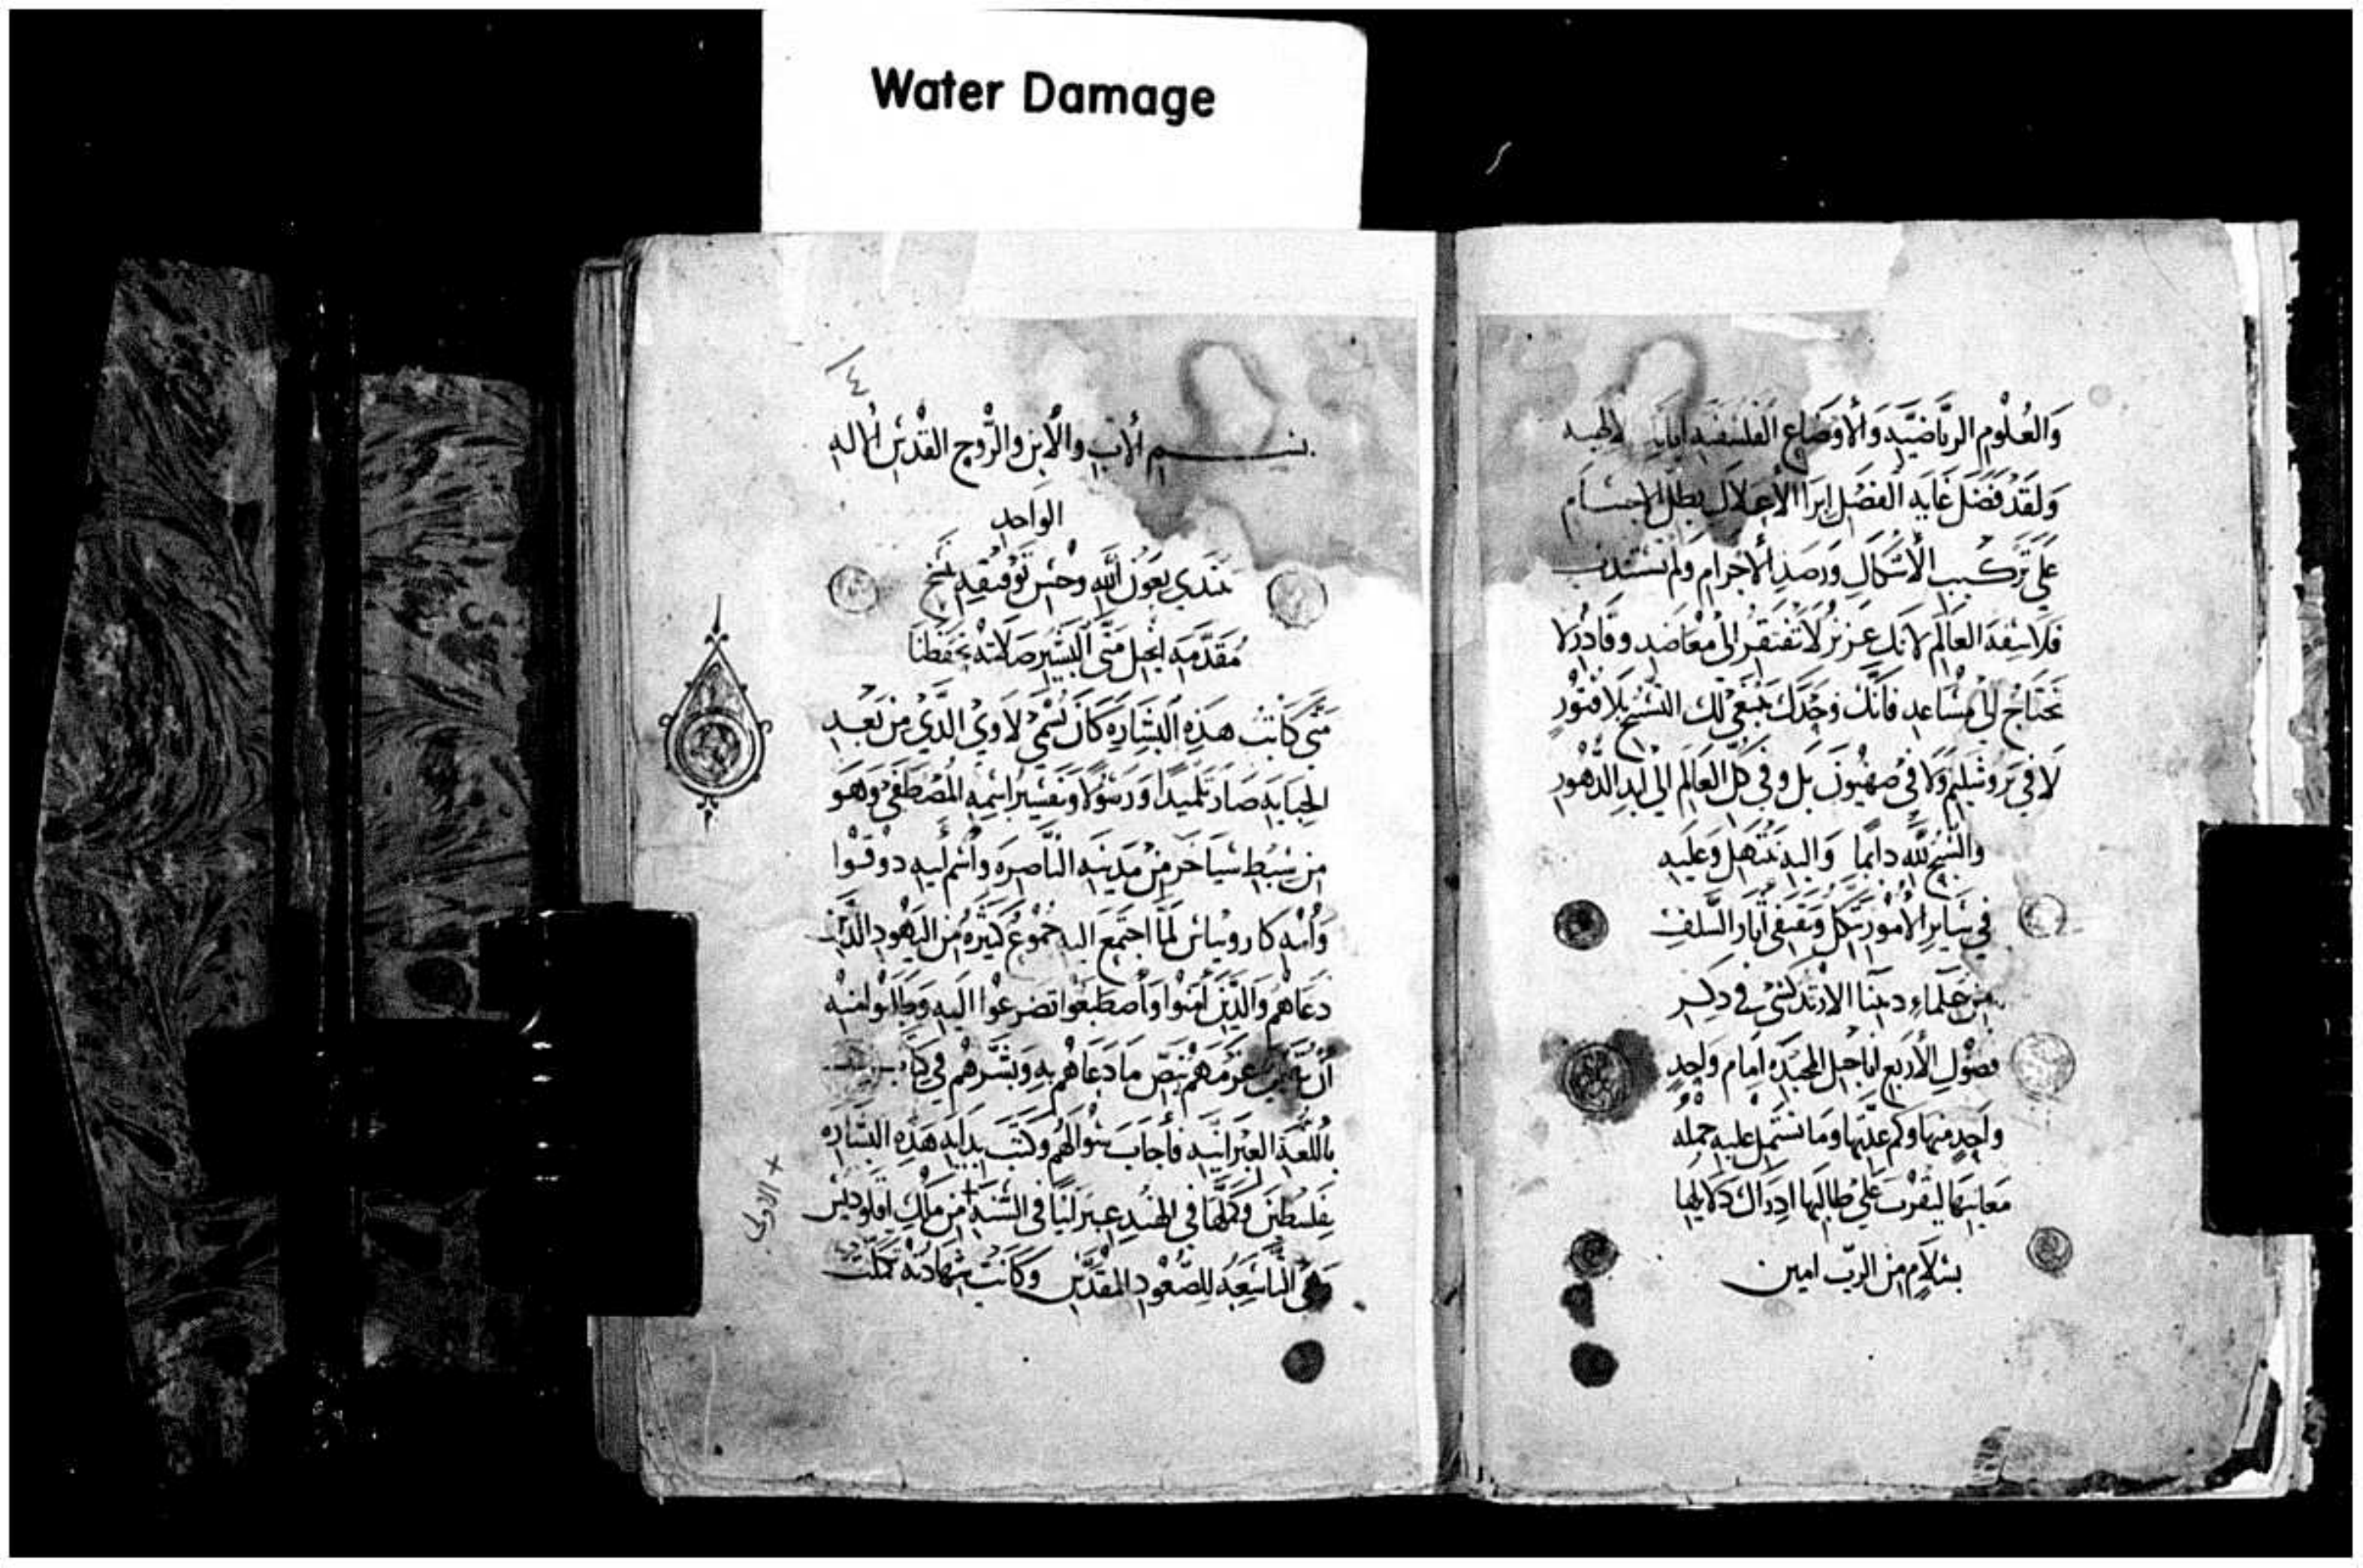 Water Damage
والعُلوم الرياضيَّه والاوضاع الفلسفيه
ولقد فضل غايه الفضل ابرا الاعلال بطل الاجسام
على تركيب الاشكال ورصد الاجرام ولم تستدن
فلاسفة العالم لانك عزيز لا تفتقر الى معاضد وقادر لا
تحتاج الى مساعد فانك وحدك ينبغي لك التسبيح بلا فتور
لا في يروشليم ولا في صهيون بل وفي كل العالم الى ابد الدهور
والسبح لله دايما واليه نبتهل وعليه
في ساير الامور نتكل ونقتفي آثار السلف
من علماء ديننا الارتدكسي في ذكر
فصول الاربع اناجيل المجيده امام واحد
واحد منها وكم عدتها وما تشتمل عليه جمله
معانيها ليقرب على طالبها ادراك دلايلها
بسلام من الرب امين
١٤
بسم الاب والابن والروح القدس الاله
الواحد
نبتدي بعون الله وحسن توفيقه بنسخ
مقدمه انجيل متى البشير صلاته تحفظنا
متى كاتب هذه البشاره كان يُسمى لاوي الذي من بعد
الجبايه صار تلميدًا ورسولا وتفسير اسمه المصطفى وهو
من سبط ايساخر من مدينه الناصره واسم ابيه دوقوا
وامه كاروتياس لما اجتمع اليه جموع كثيره من اليهود الذين
دعاهم والذين امنوا واصطبغوا تضرعوا اليه وطالبوا منه
ان عزمهم بنص ما دعاهم به وبشرهم في كتاب
باللغه العبرانيه فأجاب سوالهم وكتب بدايه هذه البشاره
بفلسطين وكملها في الهند عبرانيا في السنه + من ملك اقلوديس
وهى التاسعه للصعود المقدس وكانت شهادته تكملت
+ الاولى